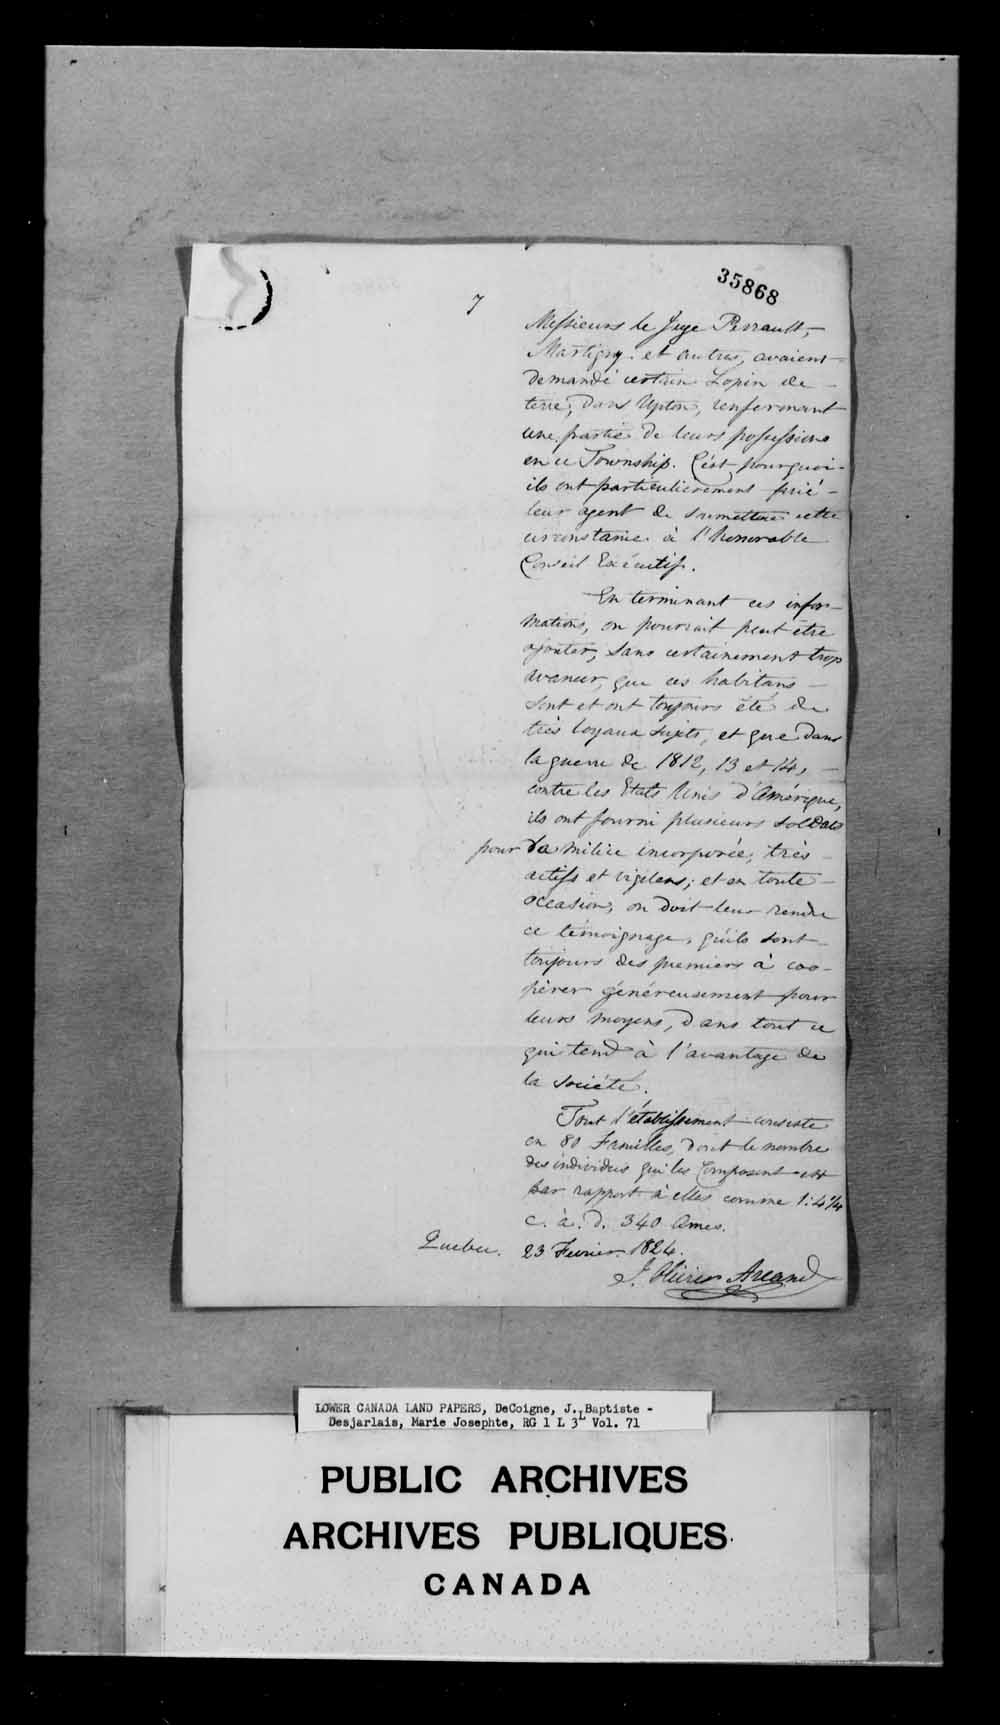 35868
7
Messieurs le Juge Perrault,
Martigny et autres, avaient
demandé certain Lopin de
terre, dans Upton, renfermant
une partie de leurs possessions
en ce Township. C'est pourquoi
ils ont particulièrement prié
leur agent de soumettre cette
circonstance à l'honorable
Conseil Exécutif.
En terminant ces infor-
mations, on pourrait peut être
ajouter, sans certainement trop
avancer, que ces habitans
sont et ont toujours été de
très loyaux sujets, et que dans
la guerre de 1812, 13 et 14,
contre les Etats Unis d'Amérique,
ils ont fourni plusieurs soldats
pour la milice incorporée, très
actifs et vigilens; et en toute
occasion, on doit leur rendre
ce témoignage, qu'ils sont
toujours des premiers à coo-
pérer généreusement pour
leurs moyens, dans tout ce
qui tend à l'avantage de
la société.
Tout l'établissement consiste
en 80 Familles, dont le nombre
des individus qui les Composent est
par rapport à elles comme 1:4¼
c. à. d. 340 Ames.
Quebec. 23 Fevrier 1824.
J. Olivier Arcand
LOWER CANADA LAND PAPERS, DeCoigne, J. Baptiste -
Desjarlais, Marie Josephte, RG 1 L 3L Vol. 71
PUBLIC ARCHIVES
ARCHIVES PUBLIQUES
CANADA